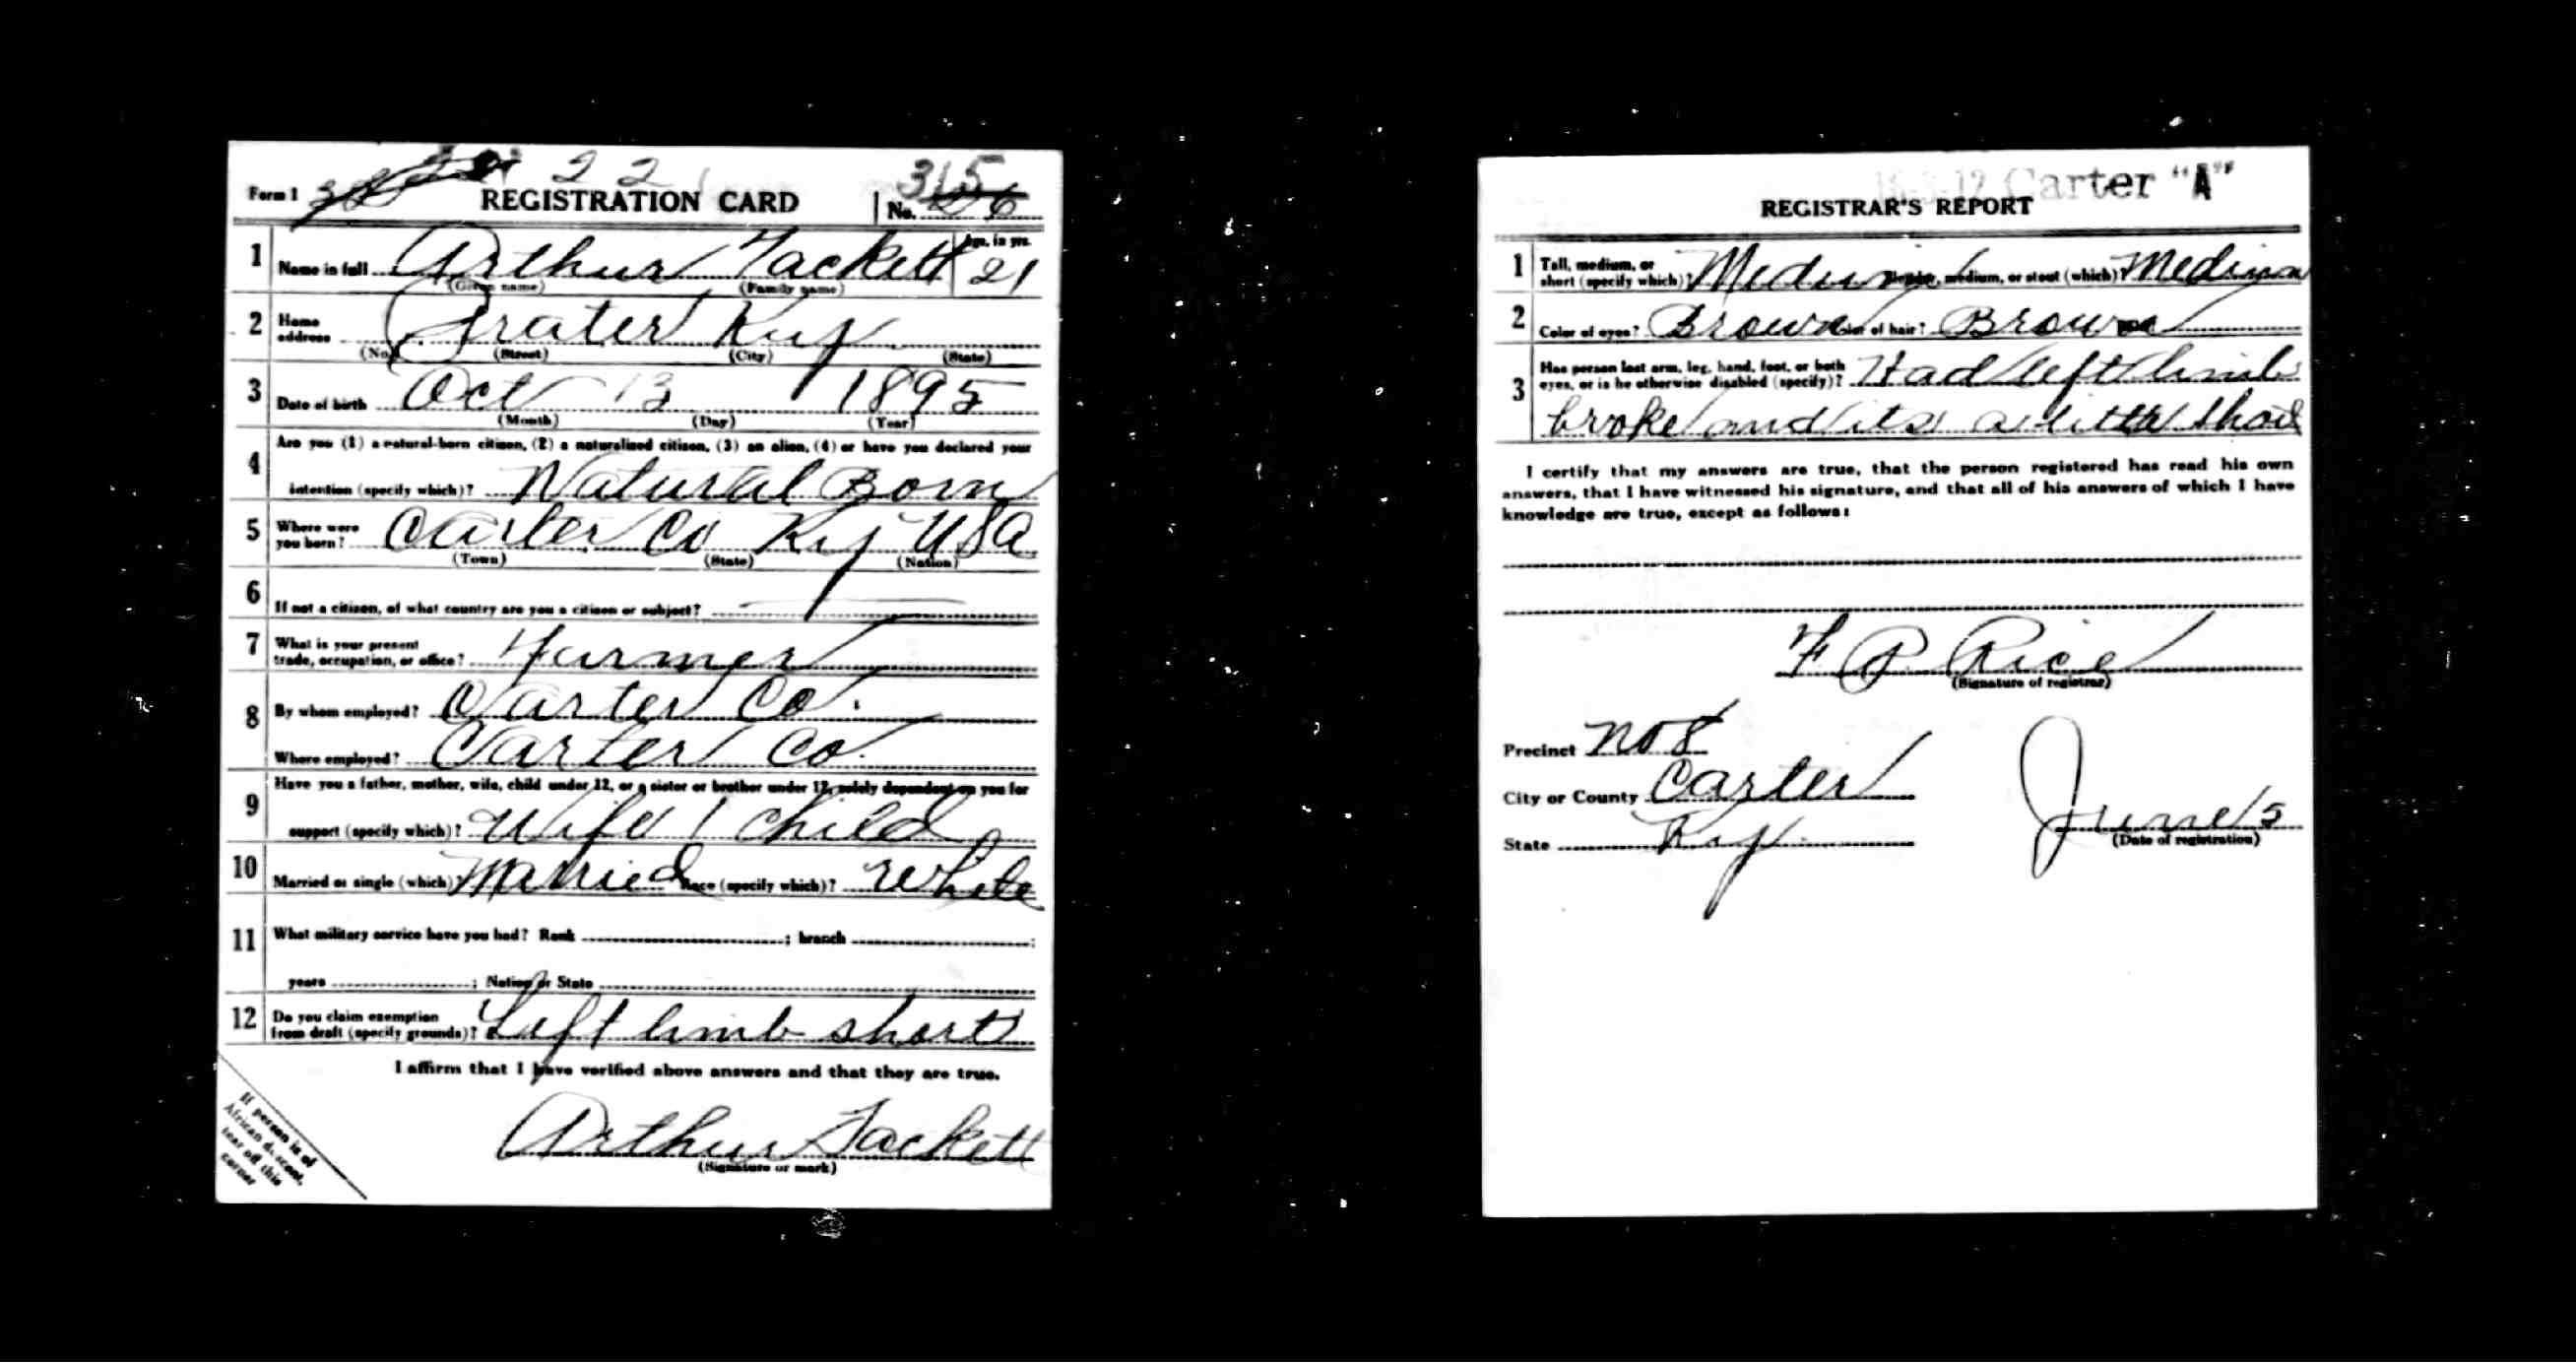 22
Form 1 REGISTRATION CARD No. 26 315
1 Name in full Arthur Tackett Age, in yrs. 21
(Given name) (Family name)
2 Home address Prater Ky
(No.) (Street) (City) (State)
3 Date of birth Oct 13 1895
(Month) (Day) (Year)
4 Are you (1) a natural-born citizen, (2) a naturalized citizen, (3) an alien, (4) or have you declared your
intention (specify which)? Natural Born
5 Where were you born? Carter Co Ky USA
(Town) (State) (Nation)
6 If not a citizen, of what country are you a citizen or subject?
7 What is your present trade, occupation, or office? Farmer
8 By whom employed? Carter Co.
Where employed? Carter Co.
9 Have you a father, mother, wife, child under 12, or a sister or brother under 12, solely dependent on you for
support (specify which)? Wife 1 child
10 Married or single (which)? Married Race (specify which)? White
11 What military service have you had? Rank ; branch ;
years ; Nation or State
12 Do you claim exemption from draft (specify grounds)? Left limb short
I affirm that I have verified above answers and that they are true.
Arthur Tackett
(Signature or mark)
If person is of
African descent,
tear off this
corner
Carter "A"
REGISTRAR'S REPORT
1 Tall, medium, or short (specify which)? Medium Slender, medium, or stout (which)? Medium
2 Color of eyes? Brown Color of hair? Brown
3 Has person lost arm, leg, hand, foot, or both
eyes, or is he otherwise disabled (specify)? Had left limb
broke and its a little short
I certify that my answers are true, that the person registered has read his own
answers, that I have witnessed his signature, and that all of his answers of which I have
knowledge are true, except as follows:
F P Rice
(Signature of registrar)
Precinct No 8
City or County Carter
State Ky.
June 5
(Date of registration)